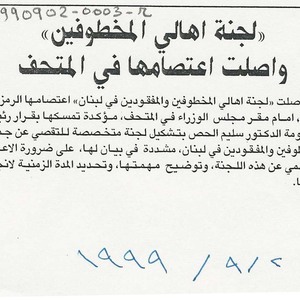 990902-0003-R
«لجنة اهالي المخطوفين»
واصلت اعتصامها في المتحف
صلت «لجنة اهالي المخطوفين والمفقودين في لبنان» اعتصامها الرمز
، امام مقر مجلس الوزراء في المتحف، مؤكدة تمسكها بقرار رئيـ
ومة الدكتور سليم الحص بتشكيل لجنة متخصصة للتقصي عن جمـ
طوفين والمفقودين في لبنان، مشددة في بيان لها، على ضرورة الاعـ
مي عن هذه اللجنة، وتوضيح مهمتها، وتحديد المدة الزمنية لانجـ
ـا.
١٩٩٩ / ٩ / ٢